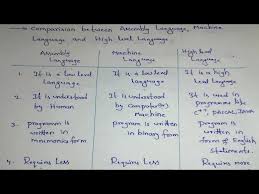 → Comparision between Assembly Language, Machine
Language and High level Language
Assembly Language
Machine Language
High level Language
1. It is a low level language
It is a low level language
It is a high level language
2. It is understood by Human
It is understood by Computer(s) Machine
It is used in programme like C++, PASCAL, JAVA
3. program is written in mnemonics form
program is written in binary form
program is written in form of English Statements.
4. Requires Less
Requires Less
Requires more